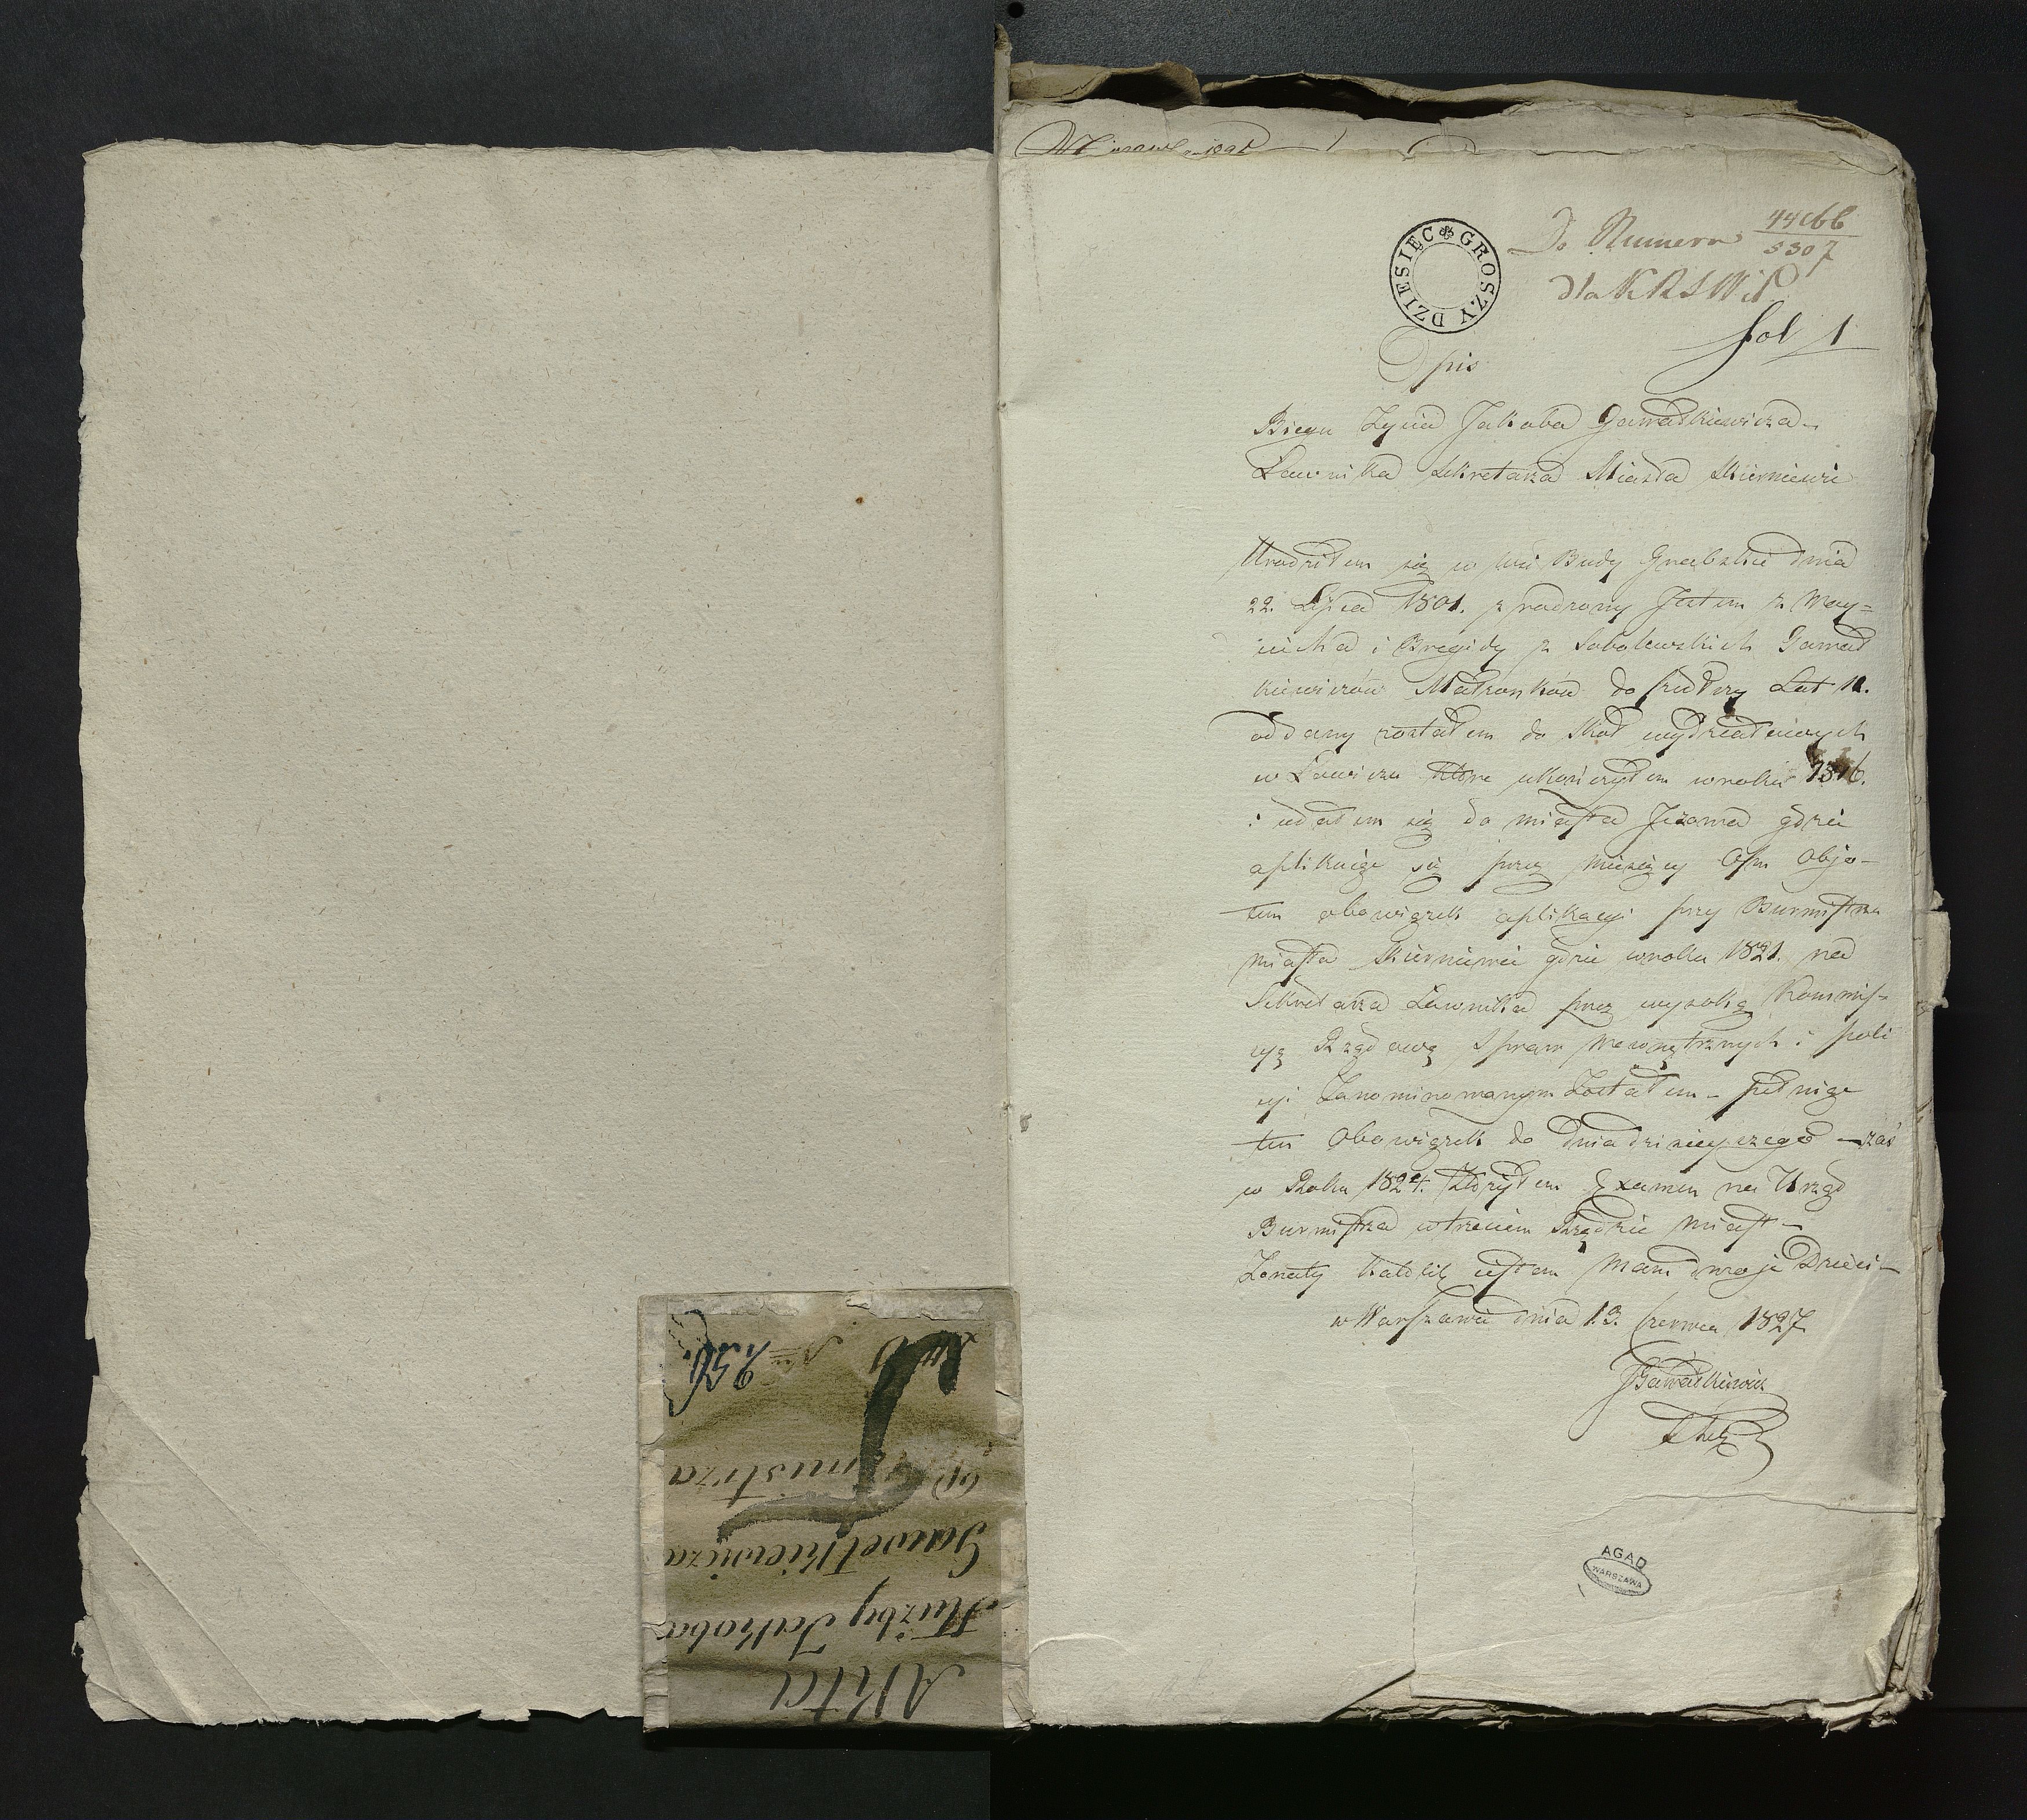 Do Numeru 44166/3307
dla KRSWiP
DZIESIĘC GROSZY
fol 1
Opis
Biegu Zycia Jakoba Gawałkiewicza -
Ławnika Sekretarza Miasta Skierniewic
Urodziłem się w wsi Budy Grabskie dnia
22. Lipca 1801. z rodzony Jestem z Woy=
ciecha i Bregidy z Sobolewskich Gawał
kiewiczów Małżonków do szedłszy Lat 11.
oddany zostałem do Szkół wydziałowych
w Łowiczu które ukończyłem w roku 1816.
i udałem się do miasta Jeżowa gdzie
aplikuiąc się przez miesięcy Ośm Obją-
łem obowiązek aplikacyi przy Burmistrzu
miasta Skierniewic gdzie w roku 1821. na
Sekretarza Ławnika przez wysoką Kommis-
syą Rządową Spraw Wewnętrznych i Poli
cyi Zanominowanym Zostałem - pełniąc
ten Obowiązek do dnia dzisieyszego - zaś
w Roku 1824. Złożyłem Examen na Urząd
Burmistrza w trzecim Rzędzie Miast -
Żonaty Katolik iestem Mam dwoje Dzieci -
w Warszawie dnia 13. Czerwca 1827
JGawałkiewicz
AGAD
WARSZAWA
Akta
Służby Jakoba
Gawełkiewicza
256.